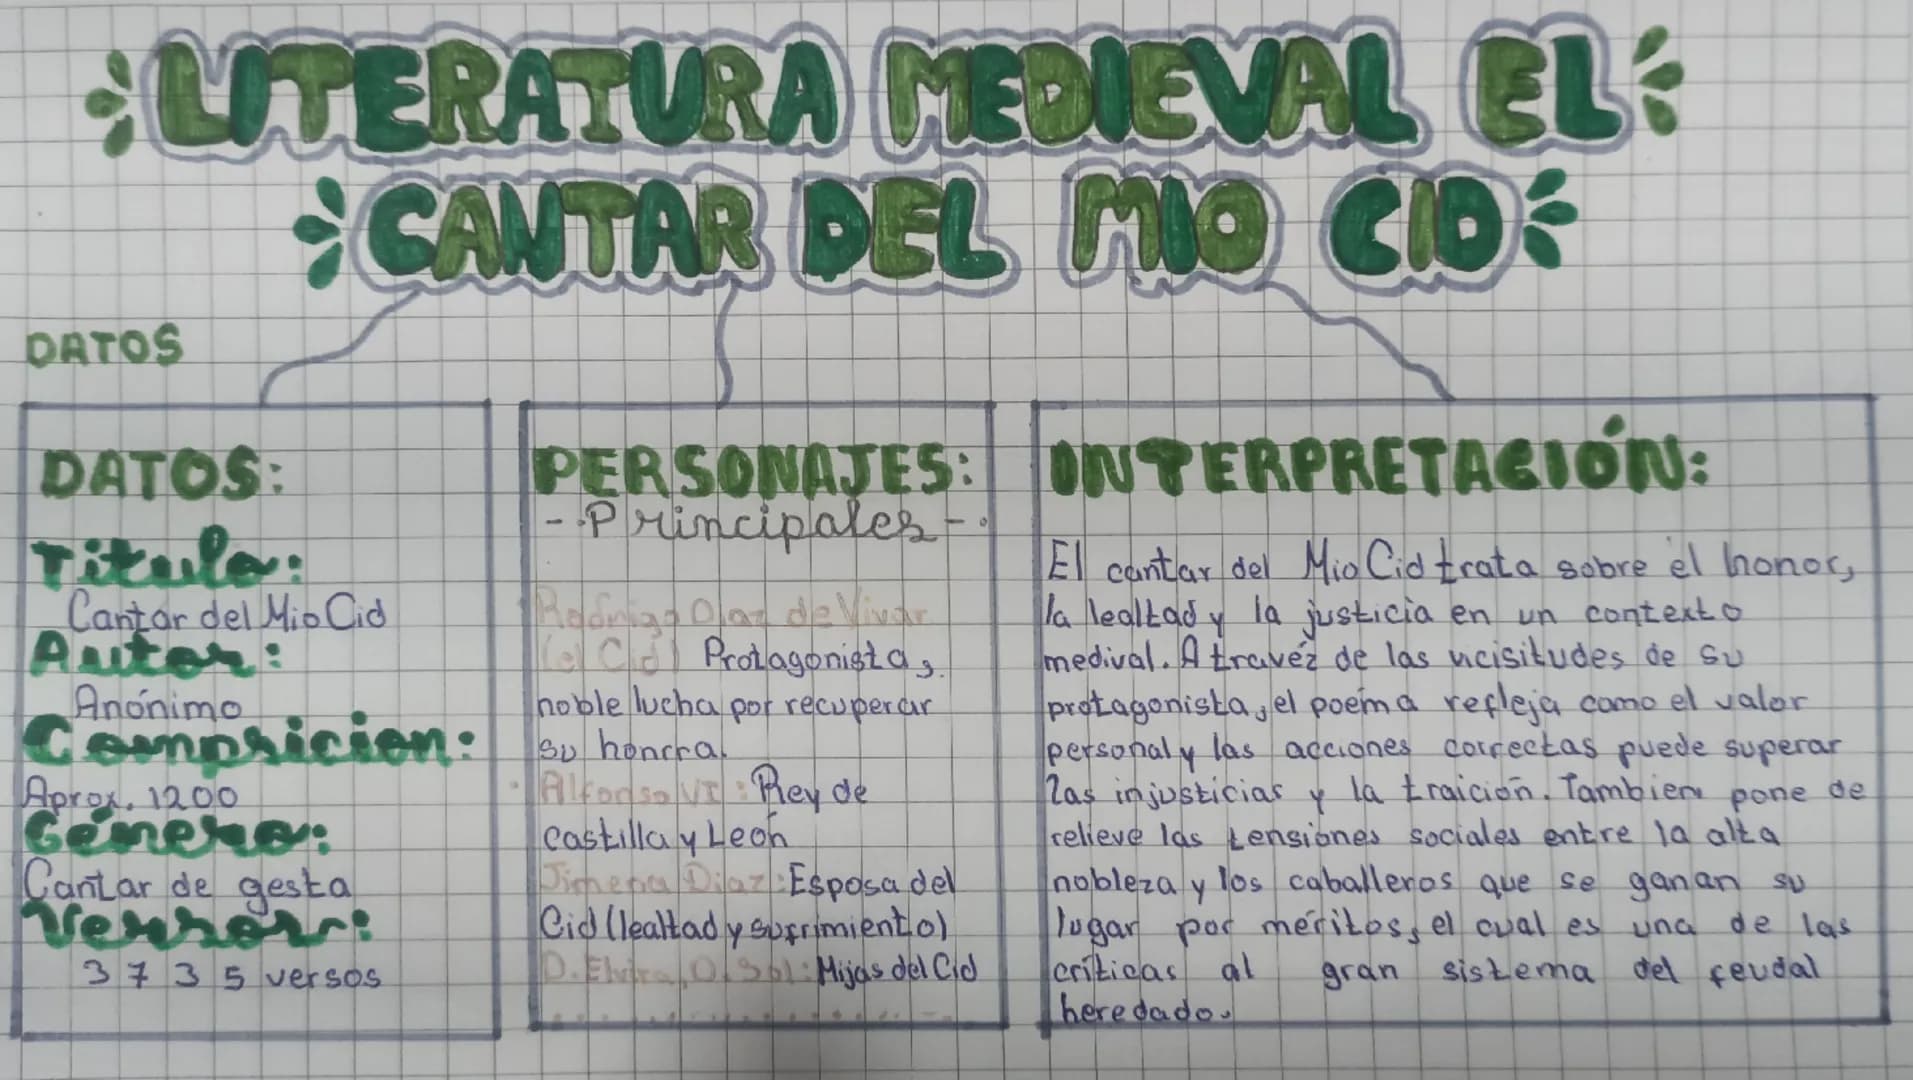 LITERATURA MEDIEVAL EL
CANTAR DEL MIO CID
DATOS
DATOS:
Titulo:
Cantar del Mio Cid
Autor:
Anónimo
Compricion:
Aprox. 1200
Género:
Cantar de gesta
Versos:
3735 versos
PERSONAJES:
-·Principales-·
Rodrigo Diaz de Vivar
(el Cid) Protagonista,
noble lucha por recuperar
su honrra.
· Alfonso VI: Rey de
castilla y León
Jimena Diaz: Esposa del
Cid (lealtad y sufrimiento)
D. Elvira, D. Sol: Hijas del Cid
INTERPRETACIÓN:
El cantar del Mio Cid trata sobre el honor,
la lealtad y la justicia en un contexto
medival. A travéz de las vicisitudes de su
protagonista, el poema refleja como el valor
personal y las acciones correctas puede superar
las injusticias y la traición. Tambien pone de
relieve las tensiones sociales entre la alta
nobleza y los caballeros que se ganan su
lugar por méritos, el cual es una de las
críticas al gran sistema del feudal
heredado.